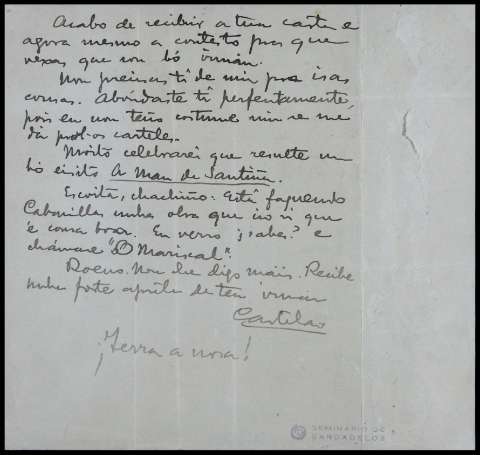 Acabo de recibir a tua carta e
agora mesmo a contesto pra que
vexas que son bó irmán.
Non precisas ti de min pra isas
cousas. Abóndaste ti perfeutamente,
pois eu non teño costume nin se me
dá por os carteles.
Moito celebrarei que resulte un
bó eisito A Man de Santiña.
Escoita, chachiño: Está facendo
Cabanillas unha obra que coido que
é cousa boa. En verso ¿sabes? e
chámase "O Mariscal".
Non che digo máis. Recibe
unha forte aperta de teu irmán
Castelao
¡Terra a nosa!
SEMINARIO DE
SARGADELOS